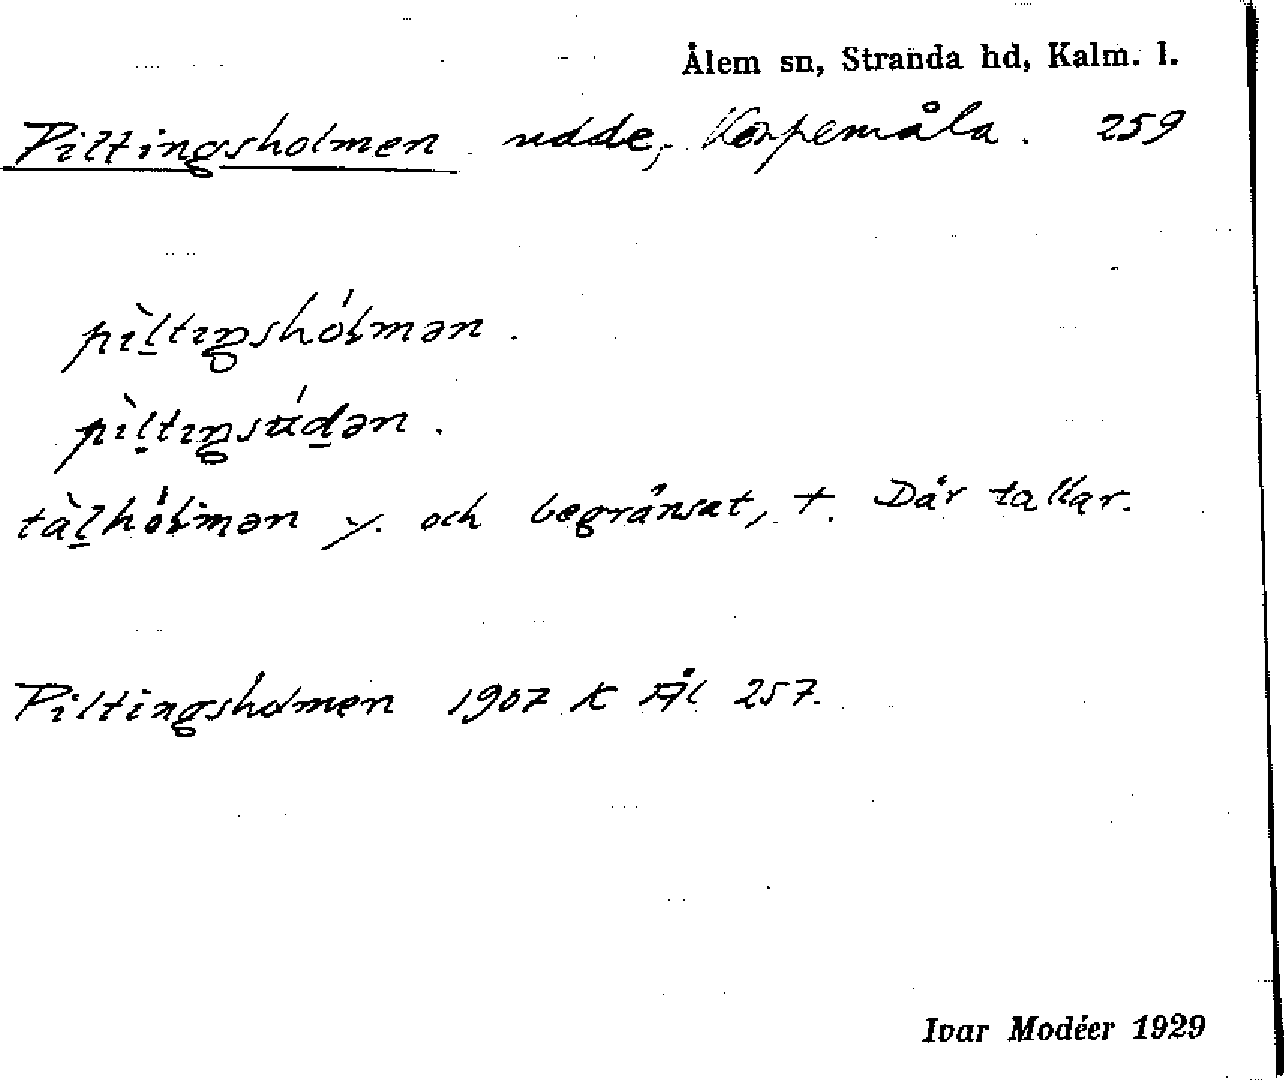 Ålem sn, Stranda hd, Kalm. l.
Piltingsholmen udde, Korpemåla. 259
pìltıŋshólmən.
pìltıŋsúdən.
tàlhólmən y. och begränsat, +. Där tallar.
Piltingsholmen 1907 K Ål 257.
Ivar Modéer 1929